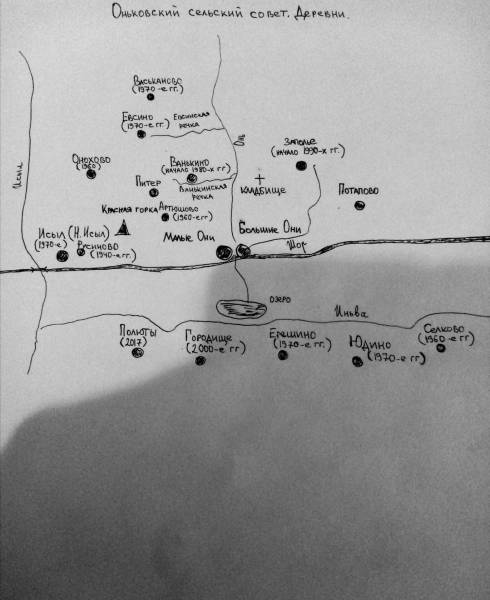 Оньковский сельский совет. Деревни.
Васькяново
(1970-е гг.)
Евсино
(1970-е гг.)
Евсинская
речка
Онь
Исыл
Онохово
(1960)
Ванькино
(начало 1980-х гг.)
Ванькинская
речка
Питер
Заполье
(начало 1990-х гг.)
Кладбище
Потапово
Красная горка
Артюшово
(1960-е гг)
Исыл (Н. Исыл)
(1970-е)
(1940-е гг.)
Малые Они
Большие Они
Шор
Озеро
Иньва
Полюты
(2017)
Городище
(2000-е гг)
Епешино
(1970-е гг)
Юдино
(1970-е гг)
Селково
(1960-е гг)